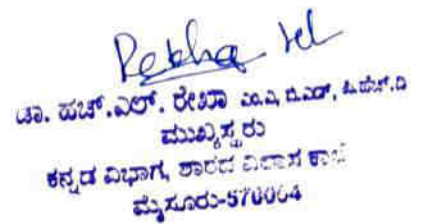 Rekha H L
ಡಾ. ಹೆಚ್.ಎಲ್. ರೇಖಾ ಎಂ.ಎ, ಬಿ.ಎಡ್, ಪಿ.ಹೆಚ್.ಡಿ
ಮುಖ್ಯಸ್ಥರು
ಕನ್ನಡ ವಿಭಾಗ, ಶಾರದ ವಿಲಾಸ
ಮೈಸೂರು-570004